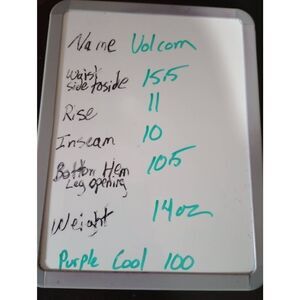 Name Volcom
Waist 15.5
side to side
Rise 11
Inseam 10
Bottom Hem 10.5
Leg opening
Weight 14oz
Purple Cool 100